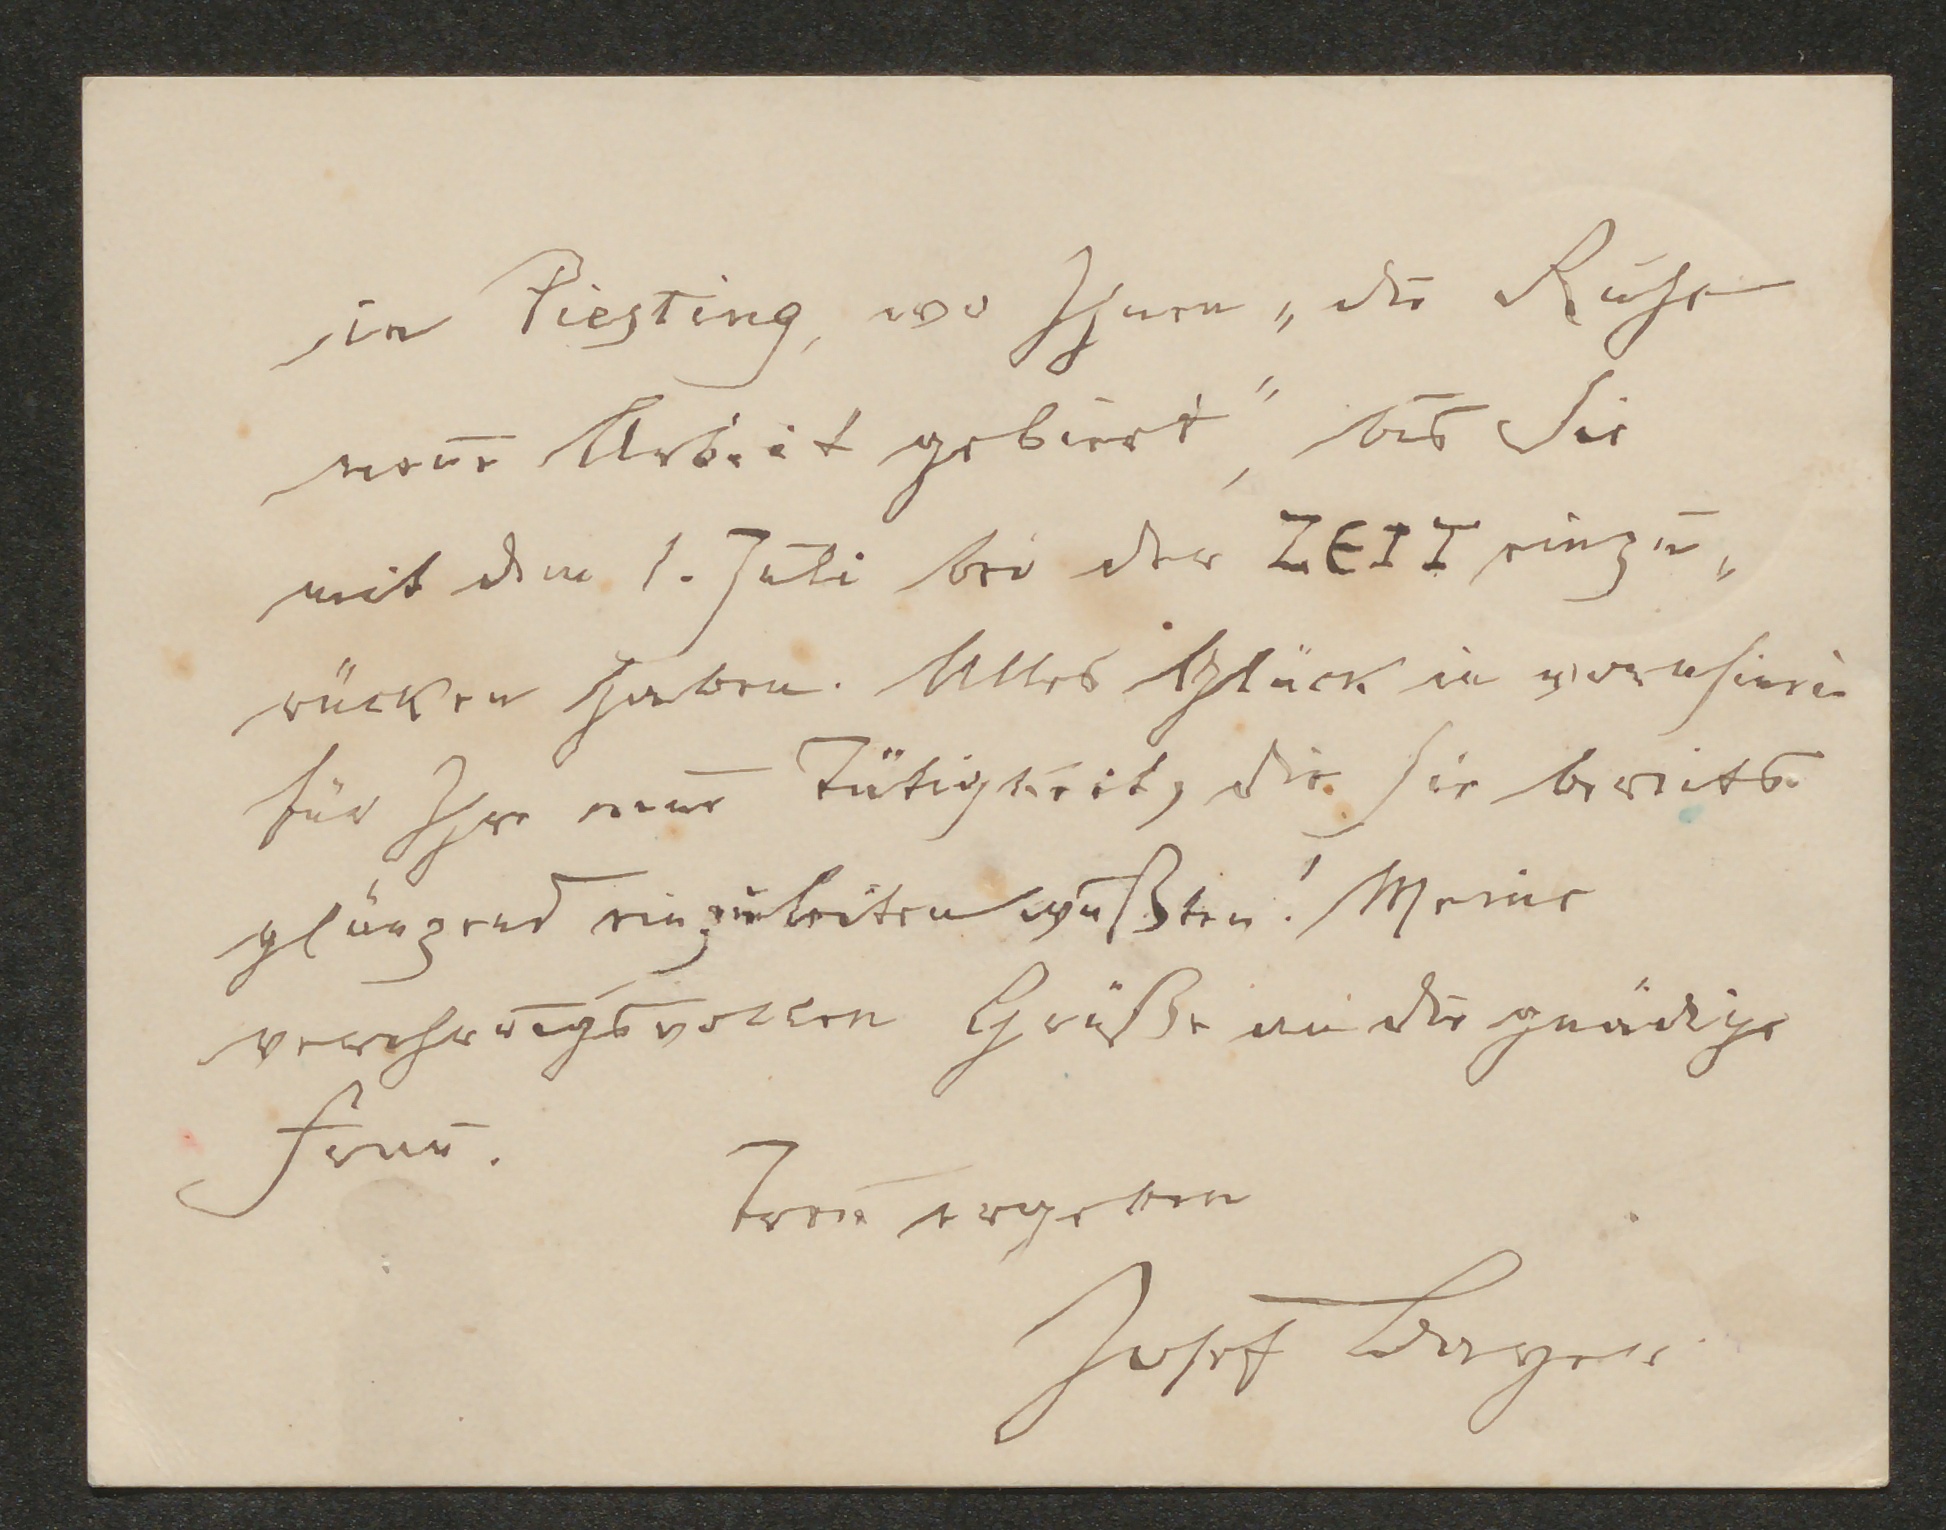 in Piesting, wo Ihnen „die Ruhe
neue Arbeit gebiert", bis Sie
mit dem 1. Juli bei der ZEIT einzu„
rücken haben. Alles Glück in vorhinein
für Ihre neue Tätigkeit, die Sie bereits
glänzend einzuleiten wußten! Meine
verehrungsvollen Grüße an die gnädige
Frau.
Treu ergeben
Josef Bayer